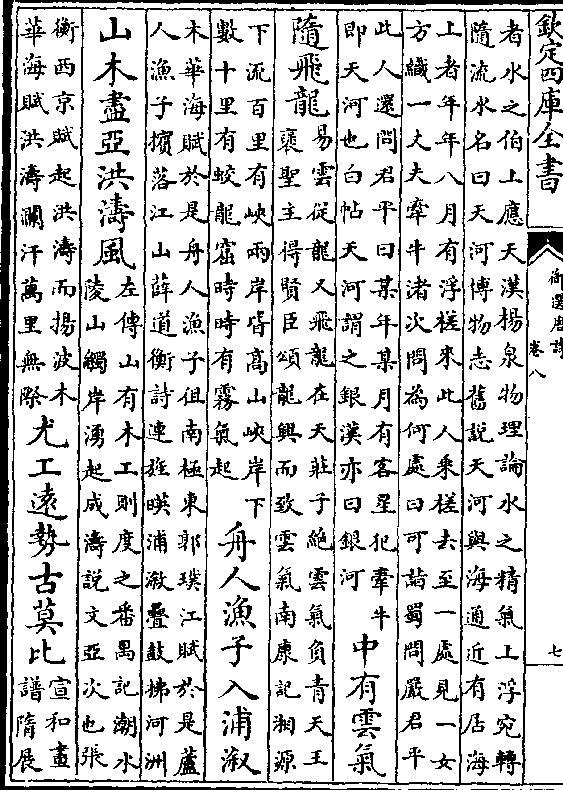 欽定四庫全書
御選唐詩
卷八
七
者水之伯上應天漢楊泉物理論水之精氣上浮宛轉
隨流水名曰天河博物志舊說天河與海通近有居海
上者年年八月有浮槎來此人乘槎去至一處見一女
方織一丈夫牽牛渚次問為何處曰可詣蜀問嚴君平
此人還問君平曰某年某月有客星犯牽牛
即天河也白帖天河謂之銀漢亦曰銀河
中有雲氣
隨飛龍
易雲從龍又飛龍在天莊子絶雲氣負青天王
襃聖主得賢臣頌龍興而致雲氣南康記湘源
下流百里有峽兩岸皆高山峽岸下
數十里有蛟龍窟時時有霧氣起
舟人漁子入浦溆
木華海賦於是舟人漁子徂南極東郭璞江賦於是蘆
人漁子擯落江山薛道衡詩連旌暎浦溆疊鼓拂河洲
山木盡亞洪濤風
左傳山有木工則度之番禺記潮水
陵山觸岸湧起成濤說文亞次也張
衡西京賦起洪濤而揚波木
華海賦洪濤瀾汗萬里無際
尤工遠勢古莫比
宣和畫
譜隋展